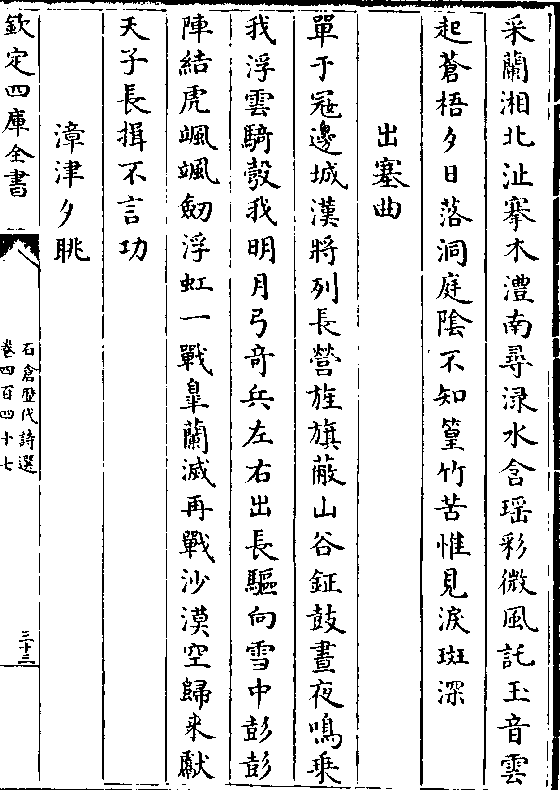 采蘭湘北沚搴木澧南尋渌水含瑶彩微風託玉音雲
起蒼梧夕日落洞庭陰不知篁竹苦惟見淚斑深
出塞曲
單于冦邊城漢將列長營旌旗蔽山谷鉦鼓晝夜鳴乗
我浮雲騎彀我明月弓竒兵左右出長驅向雪中彭彭
陣結虎颯颯劒浮虹一戰臯蘭滅再戰沙漠空歸來獻
天子長揖不言功
漳津夕眺
欽定四庫全書
石倉歷代詩選
卷四百四十七
三十三